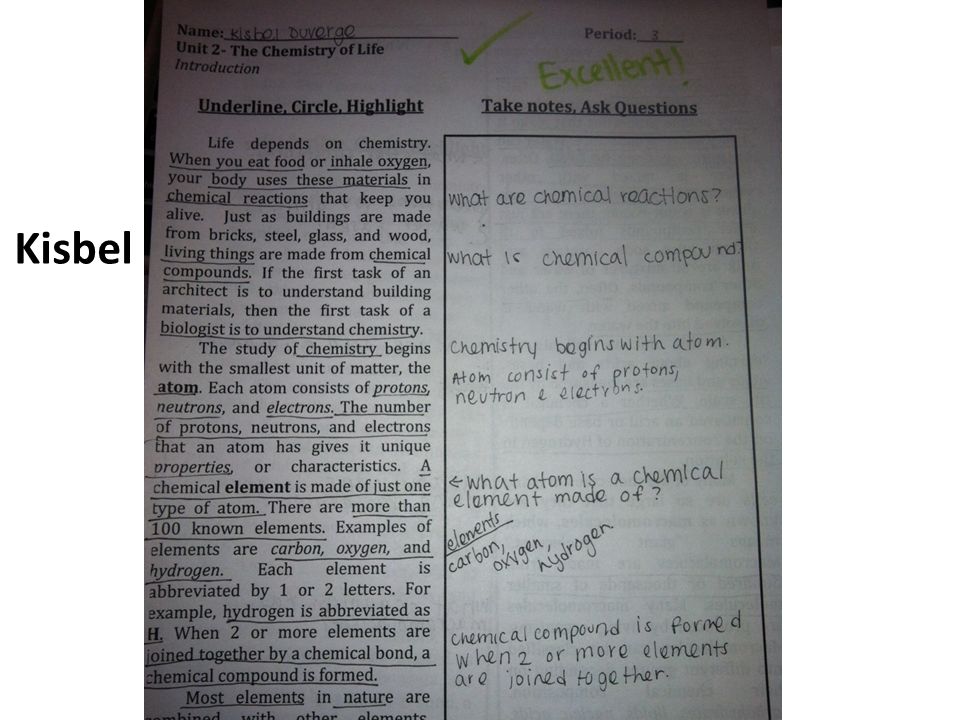 Kisbel
Name: Kisbel Duverge Period: 3
Unit 2- The Chemistry of Life
Introduction
Excellent!
Underline, Circle, Highlight
Life depends on chemistry.
When you eat food or inhale oxygen,
your body uses these materials in
chemical reactions that keep you
alive. Just as buildings are made
from bricks, steel, glass, and wood,
living things are made from chemical
compounds. If the first task of an
architect is to understand building
materials, then the first task of a
biologist is to understand chemistry.
The study of chemistry begins
with the smallest unit of matter, the
atom. Each atom consists of protons,
neutrons, and electrons. The number
of protons, neutrons, and electrons
that an atom has gives it unique
properties, or characteristics. A
chemical element is made of just one
type of atom. There are more than
100 known elements. Examples of
elements are carbon, oxygen, and
hydrogen. Each element is
abbreviated by 1 or 2 letters. For
example, hydrogen is abbreviated as
H. When 2 or more elements are
joined together by a chemical bond, a
chemical compound is formed.
Most elements in nature are
combined with other elements.
Take notes, Ask Questions
what are chemical reactions?
what is chemical compound?
chemistry begins with atom.
Atom consist of protons,
neutron e electrons.
← what atom is a chemical
element made of?
elements
carbon,
oxygen,
hydrogen.
chemical compound is formed
when 2 or more elements
are joined together.